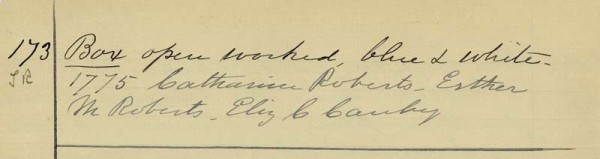 173 Box open worked, blue & white.
T R 1775 Catharine Roberts - Esther
M Roberts - Eliz C Canby